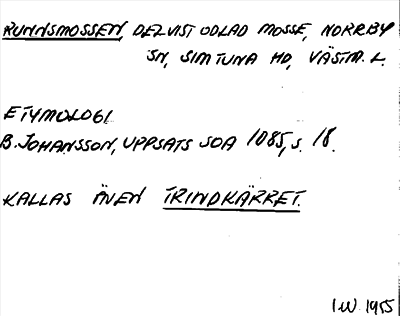 RUNNSMOSSEN, DELVIST ODLAD MOSSE, NORRBY
SN, SIMTUNA HD, VÄSTM. L.
ETYMOLOGI
B. JOHANSSON, UPPSATS SOA 1085, s. 18.
KALLAS ÄVEN TRINDKÄRRET.
I W. 1955